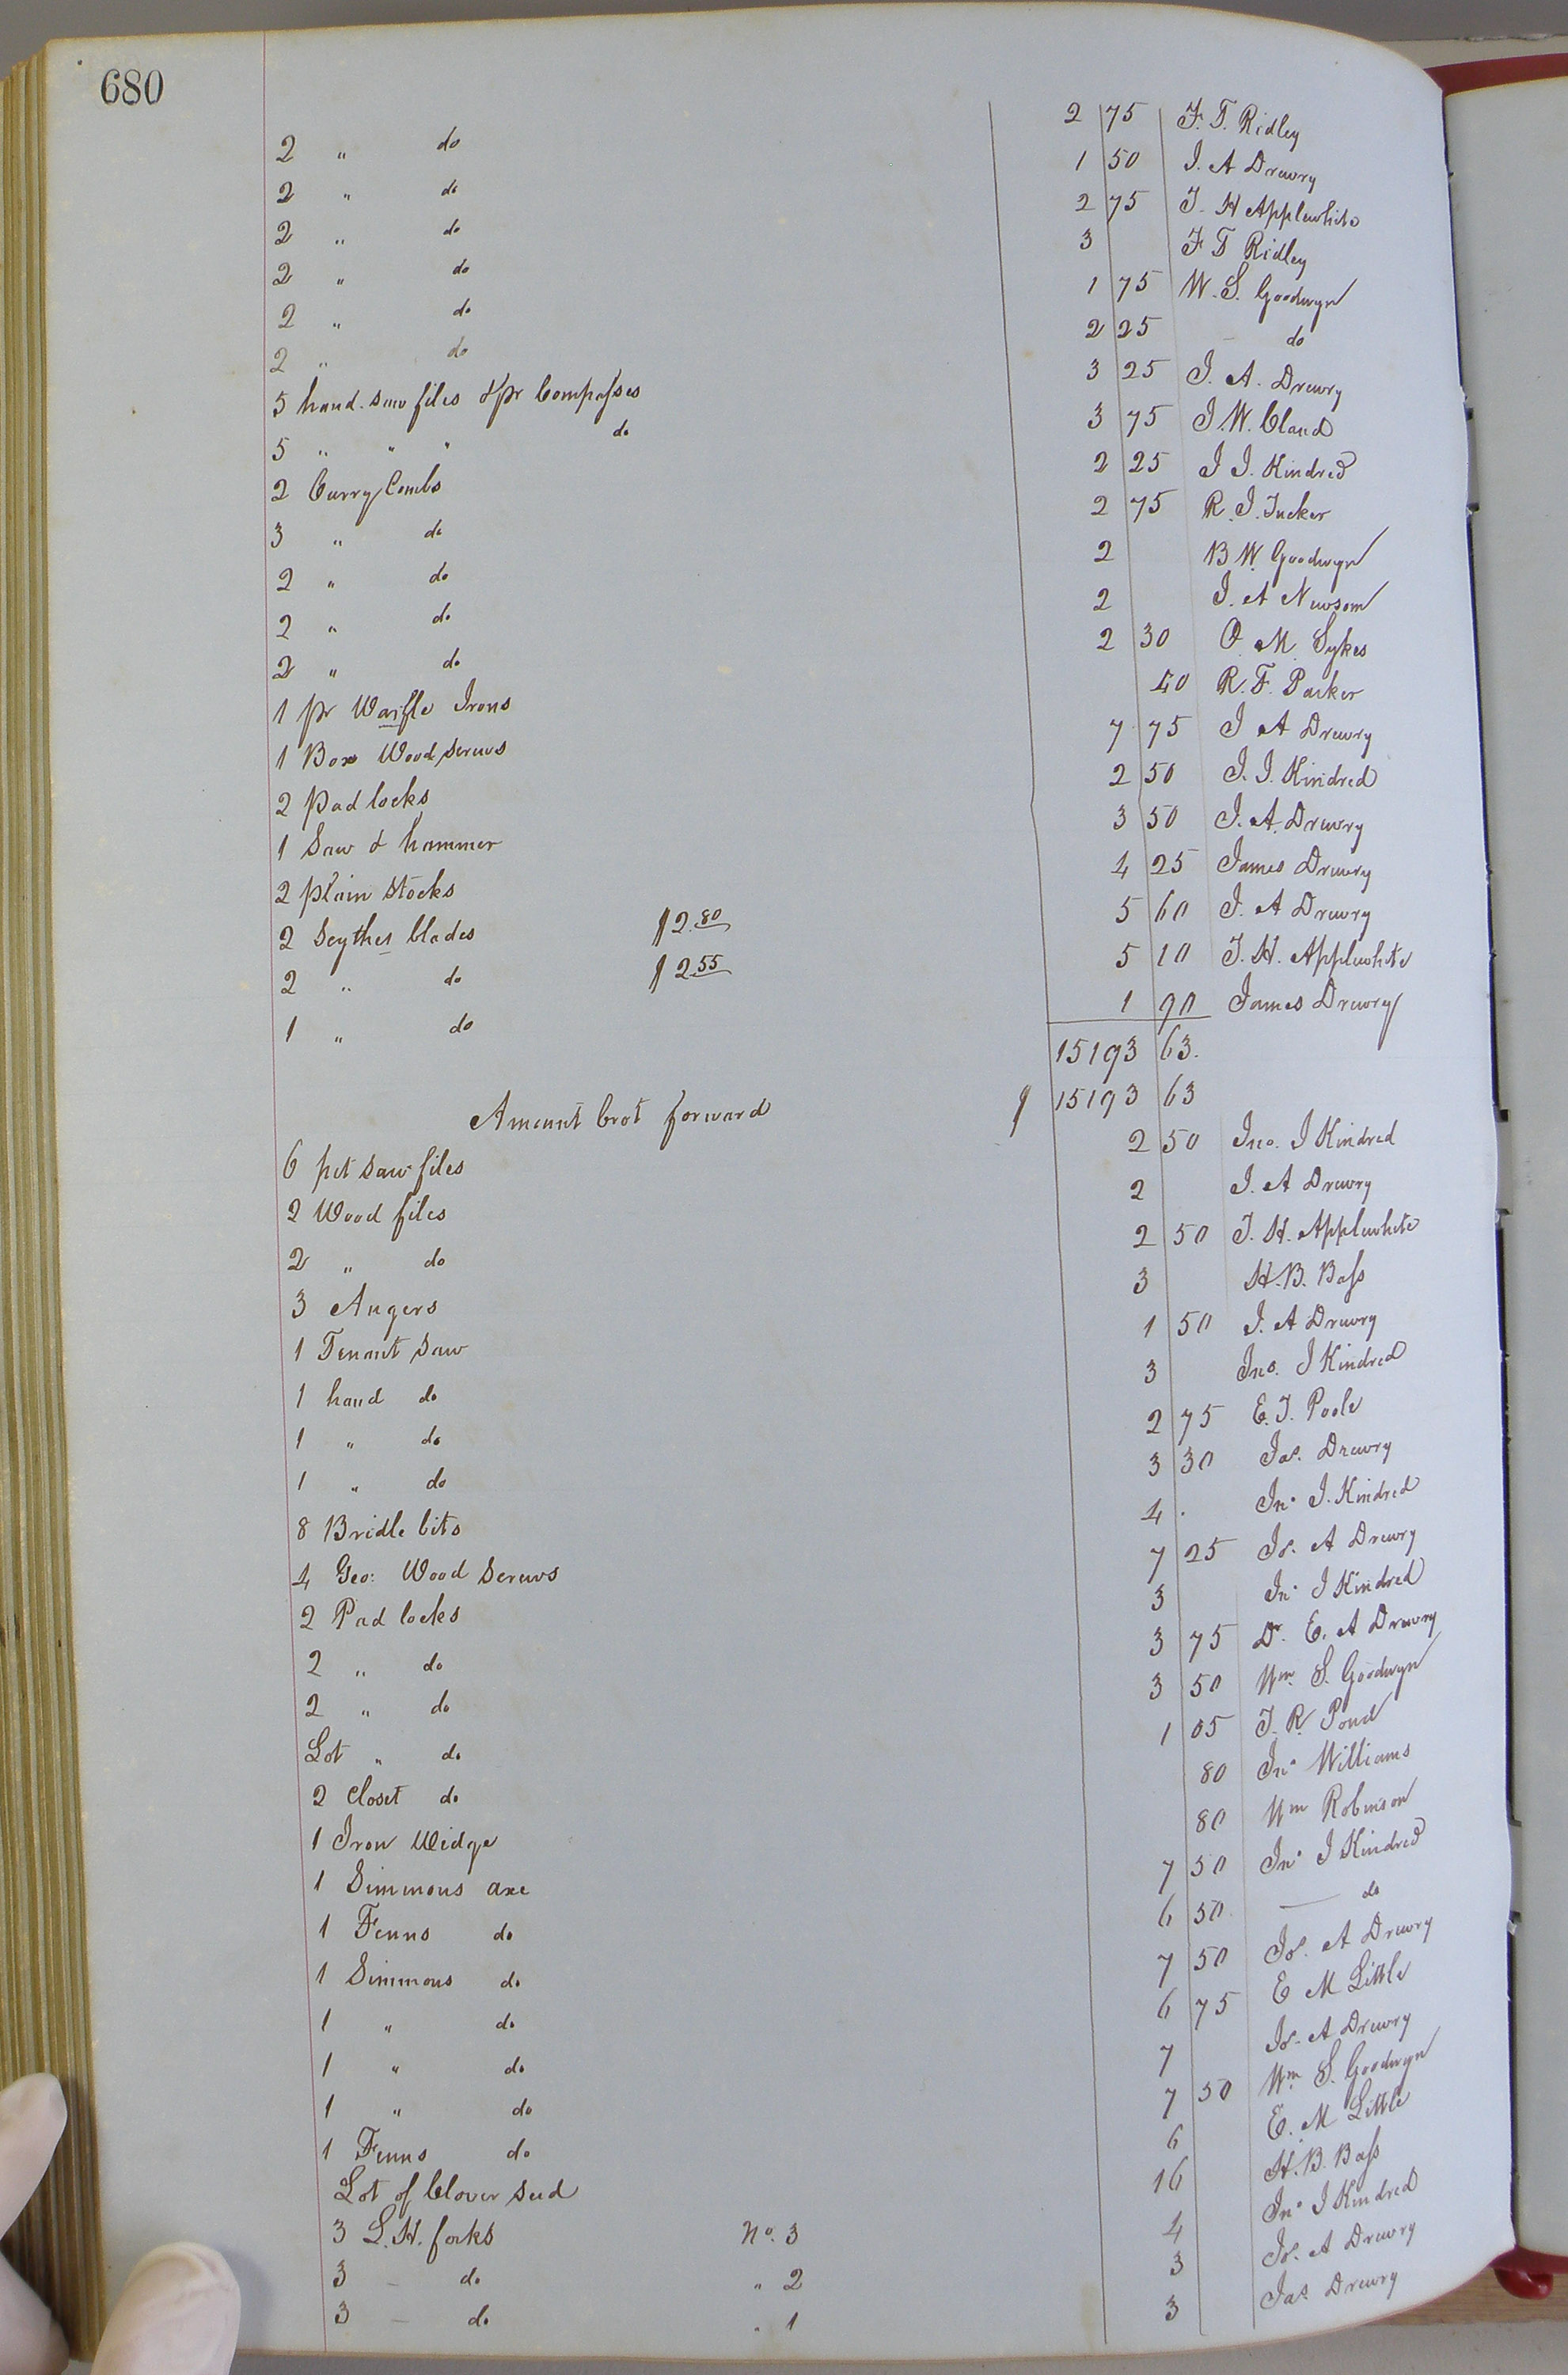 680
2 " do 2 75 F. T. Ridley
2 " do 1 50 J. A Drewry
2 " do 2 75 T. H Applewhite
2 " do 3 F T Ridley
2 " do 1 75 W. S. Goodwyn
2 " do 2 25 do
5 hand. saw files & pr Compasses 3 25 J. A. Drewry
5 " " " do 3 75 J. W. Claud
2 Curry Combs 2 25 J J. Kindred
3 " do 2 75 R. J. Tucker
2 " do 2 B W. Goodwyn
2 " do 2 J. A Newsom
2 " do 2 30 O. M. Sykes
1 pr Waifle Irons 40 R. F. Parker
1 Box Wood screws 7 75 J A Drewry
2 Pad locks 2 50 J. J. Kindred
1 Saw & hammer 3 50 J. A. Drewry
2 plain Stocks 4 25 James Drewry
2 Scythes blades $2.80 5 60 J. A Drewry
2 " do $2.55 5 10 T. H. Applewhite
1 " do 1 90 James Drewry
15193 63.
Amount brot forward $ 15193 63
6 pit saw files 2 50 Jno. J Kindred
2 Wood files 2 J. A Drewry
2 " do 2 50 T. H. Applewhite
3 Augers 3 H. B. Bass
1 Tenant saw 1 50 J. A Drewry
1 hand do 3 Jno. J Kindred
1 " do 2 75 E. T. Poole
1 " do 3 30 Jas. Drewry
8 Bridle bits 4 Jno J. Kindred
4 Gro: Wood Screws 7 25 Js. A Drewry
2 Pad locks 3 Jno J Kindred
2 " do 3 75 Dr. E. A Drewry
2 " do 3 50 Wm. S. Goodwyn
Lot " do 1 05 T. R. Pond
2 Closet do 80 Jno Williams
1 Iron Wedge 80 Wm Robinson
1 Simmons axe 7 50 Jno J Kindred
1 Fenns do 6 50 — do
1 Simmons do 7 50 Js. A Drewry
1 " do 6 75 E M Little
1 " do 7 Js. A Drewry
1 " do 7 50 Wm S. Goodwyn
1 Fenns do 6 E. M Little
Lot of Clover seed 16 H. B. Bass
3 L. H. forks No. 3 4 Jno J Kindred
3 - do " 2 3 Js. A Drewry
3 - do " 1 3 Jas Drewry